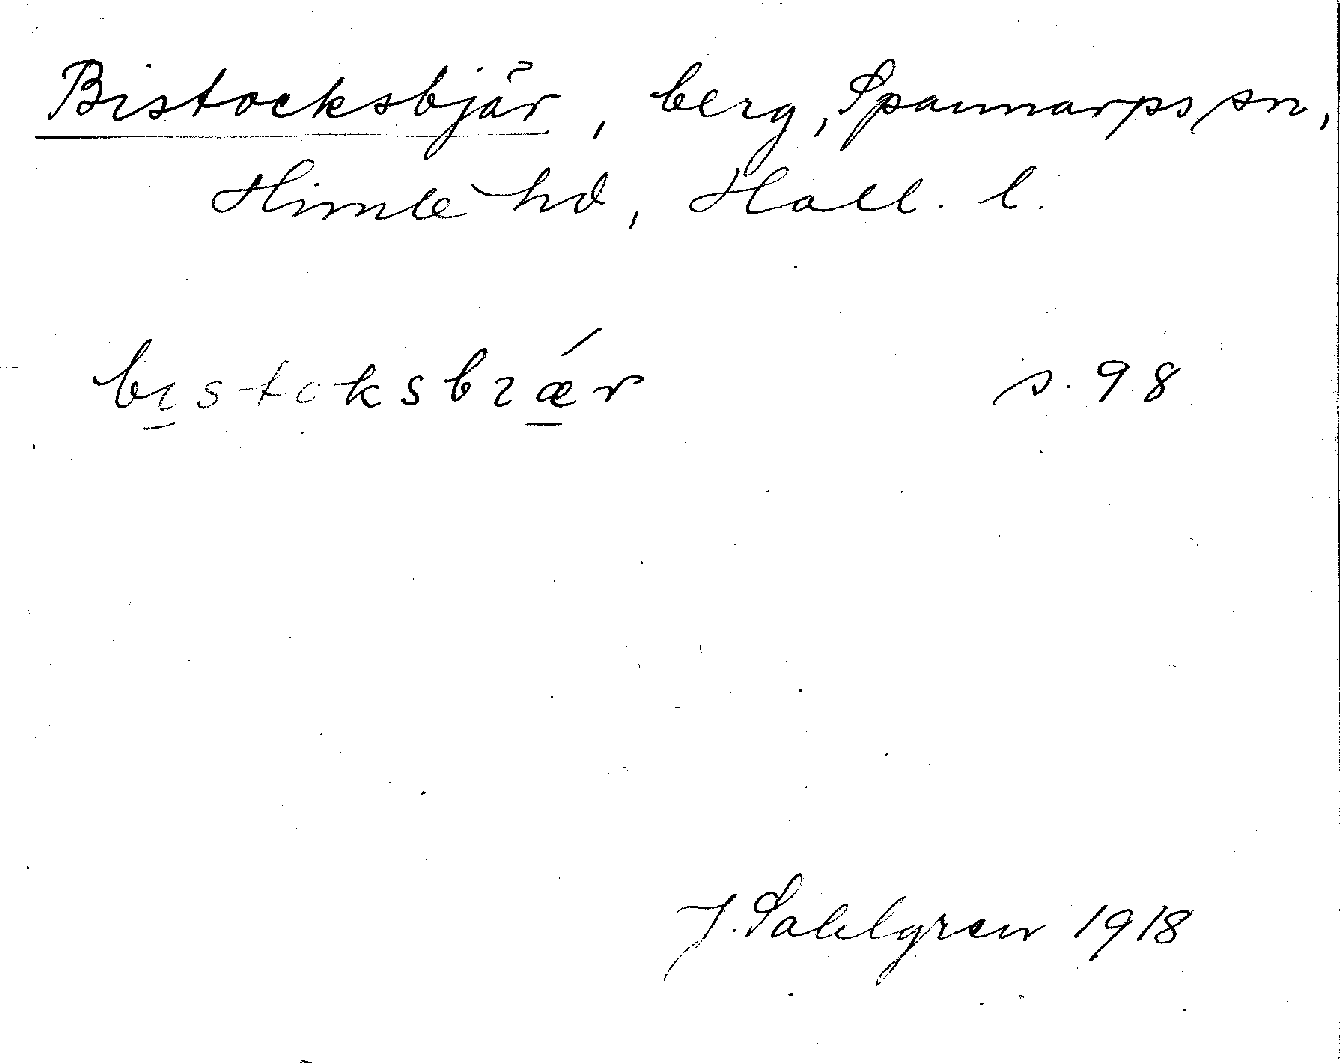 Bistocksbjär, berg, Spannarps sn,
Himle hd, Hall. l.
bıstoksbıǽr s. 98
J. Sahlgren 1918